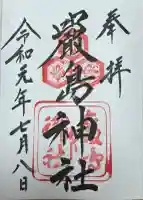 奉拝
嚴島神社
令和元年七月八日